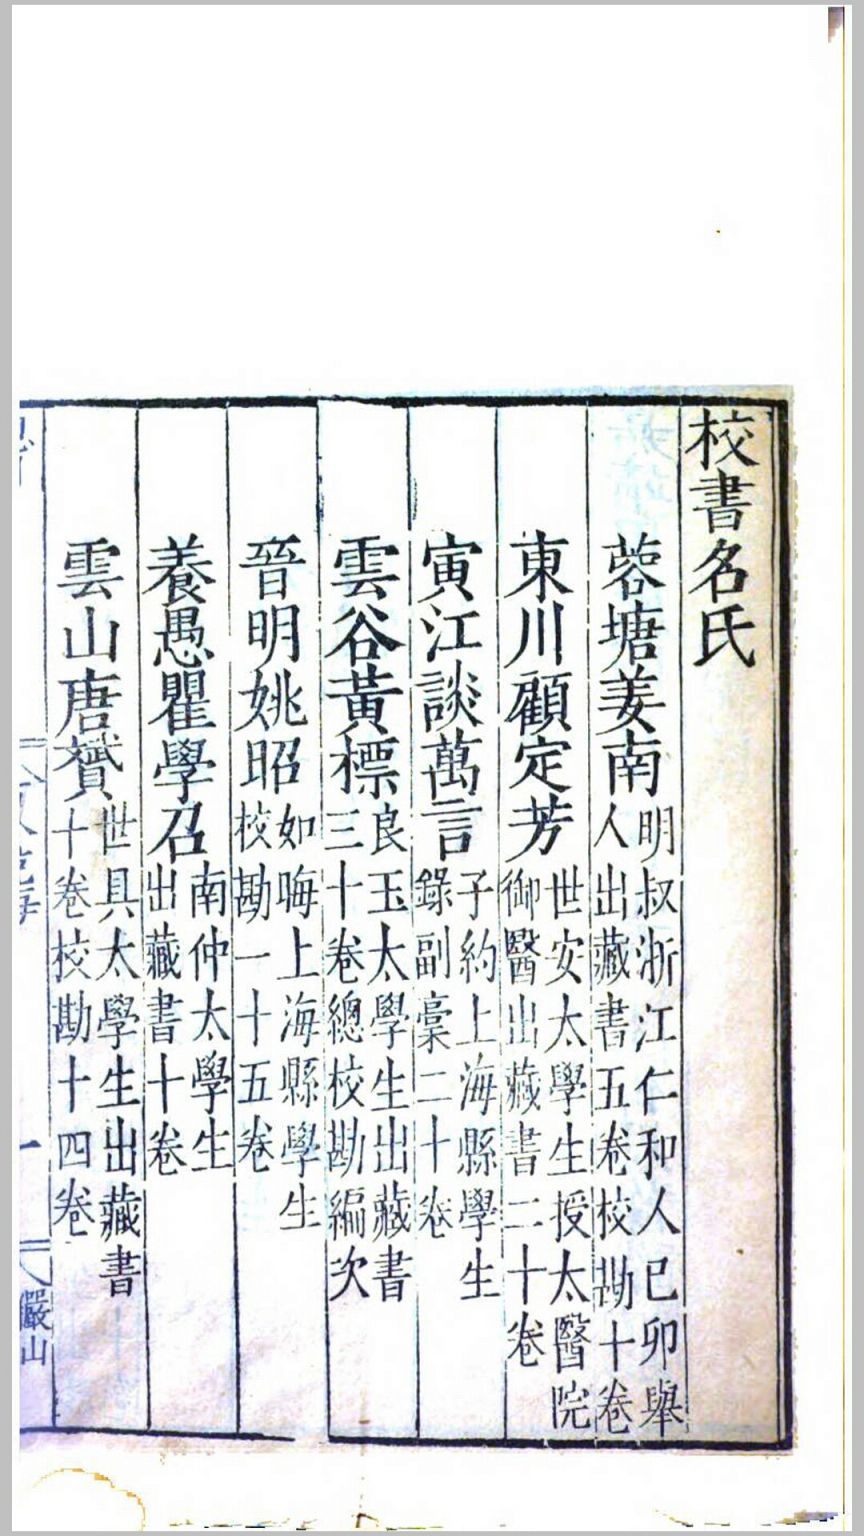 校書名氏
蓉塘姜南明叔浙江仁和人己卯舉
人出藏書五卷校勘十卷
東川顧定芳世安太學生授太醫院
御醫出藏書二十卷
寅江談萬言子約上海縣學生
錄副稾二十卷
雲谷黃標良玉太學生出藏書
三十卷總校勘編次
晉明姚昭如晦上海縣學生
校勘一十五卷
養愚瞿學召南仲太學生
出藏書十卷
雲山唐贇世具太學生出藏書
十卷校勘十四卷
一
儼山